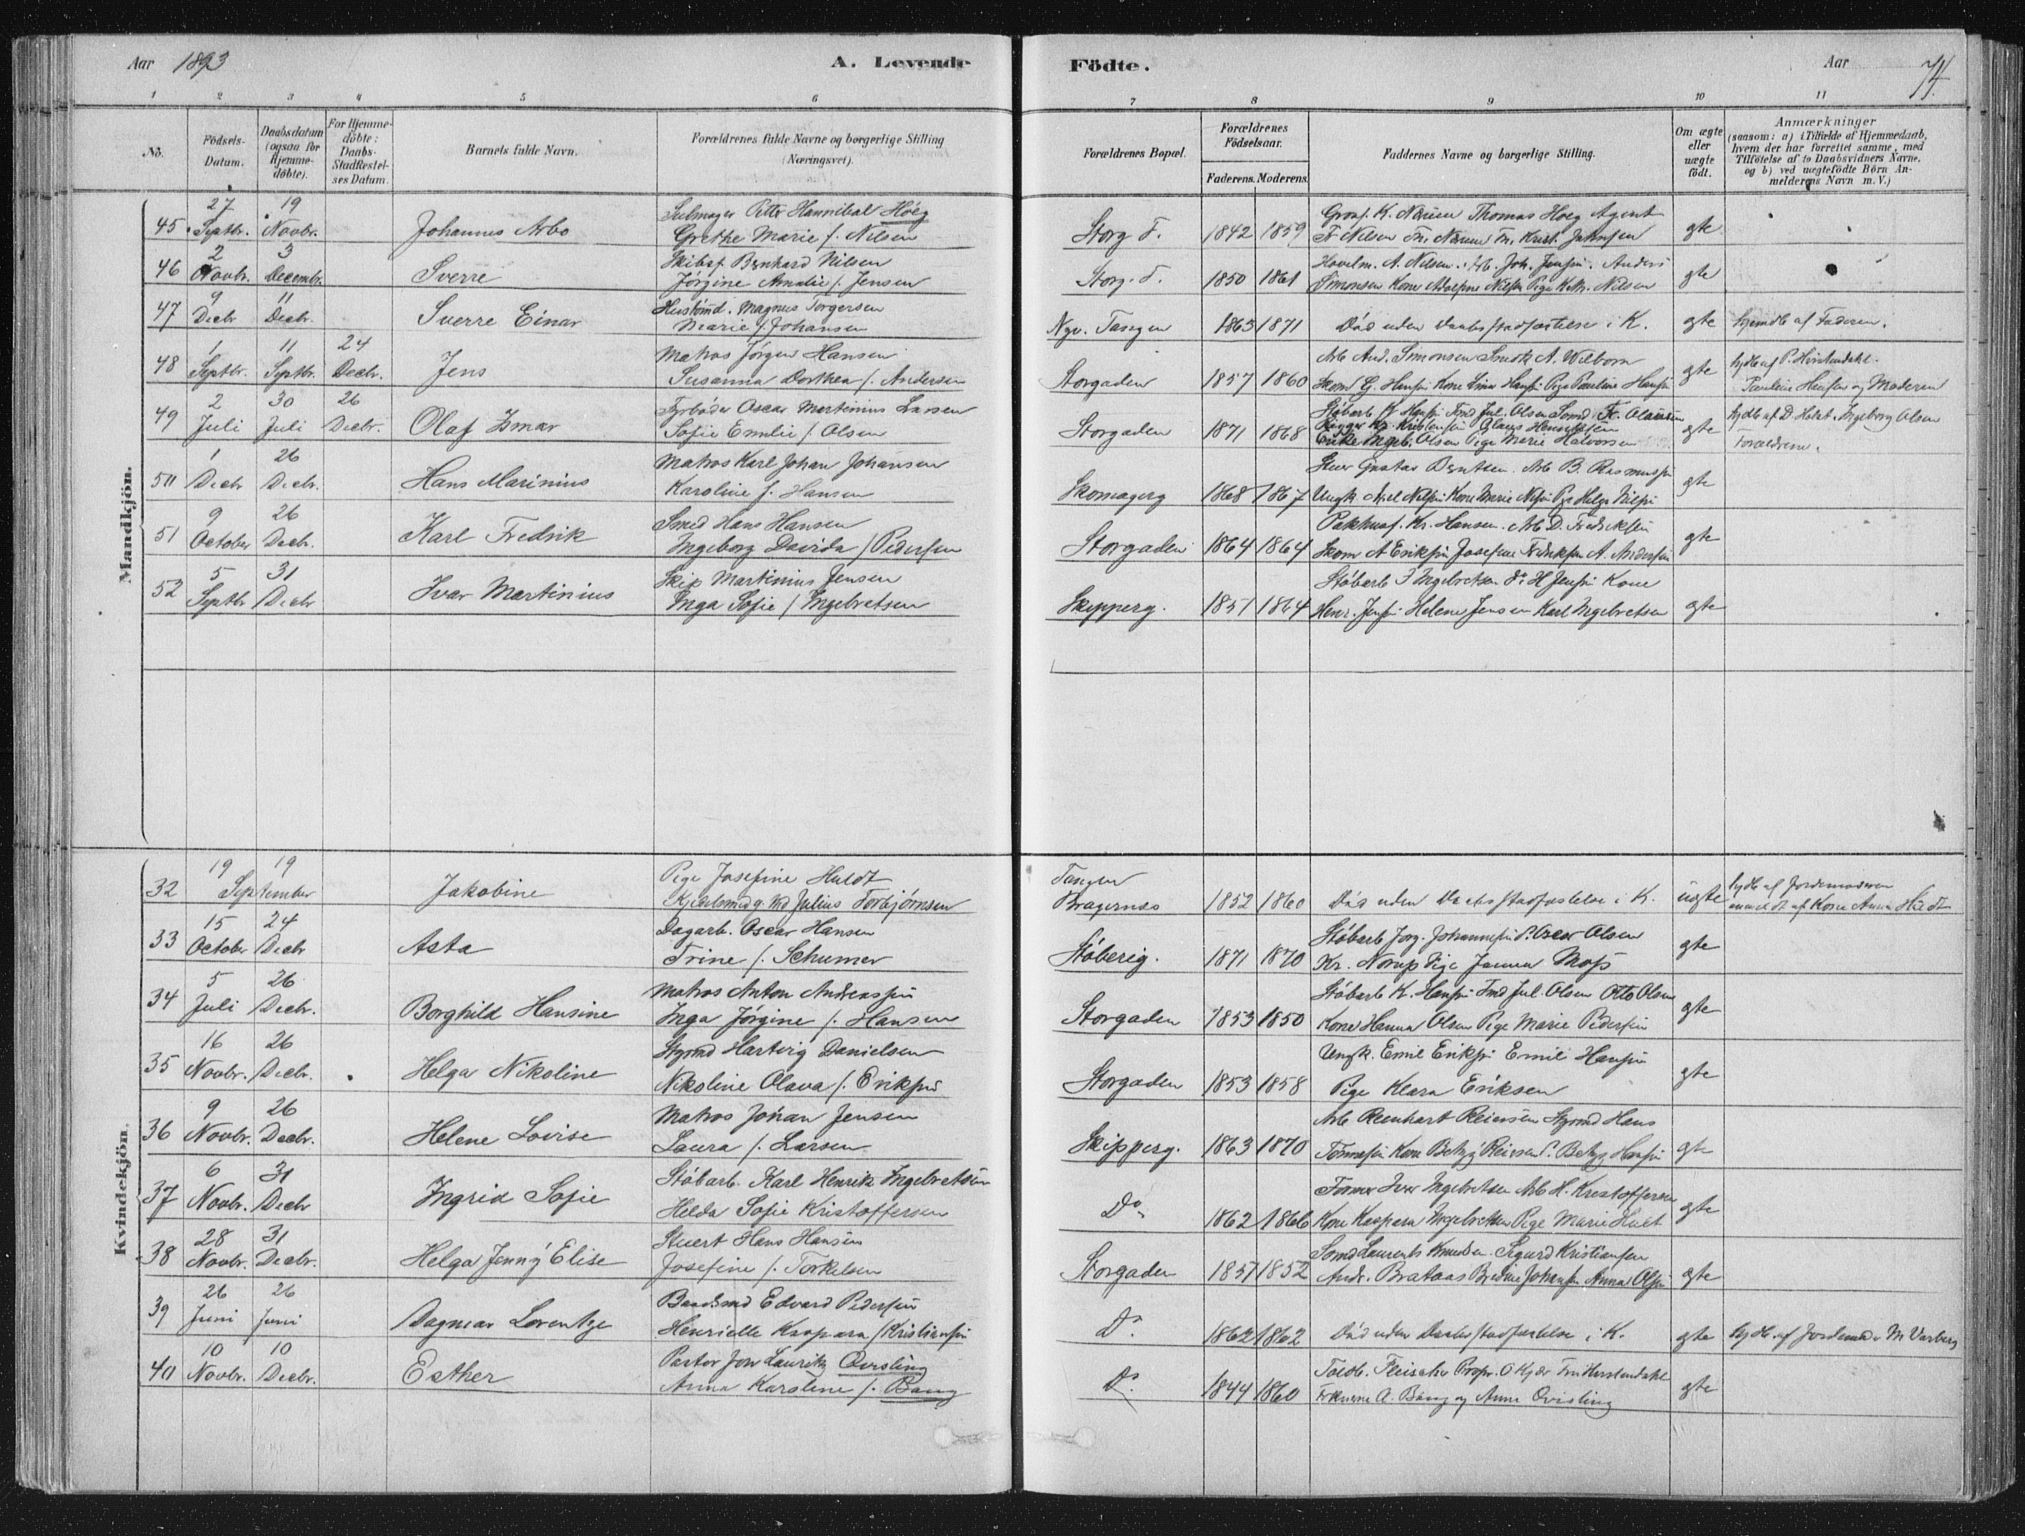 Aar 1893
A. Levende
Födte.
Aar
74.
1 2 3 4 5 6 7 8 9 10 11
No.
Födsels-Datum.
Daabsdatum (ogsaa for Hjemme-döbte).
For Hjemme-döbte: Daabs-Stadfæstel-ses Datum.
Barnets fulde Navn.
Forældrenes fulde Navne og borgerlige Stilling (Næringsvei).
Forældrenes Bopæl.
Forældrenes Födselsaar.
Faderens. Moderens.
Faddernes Navne og borgerlige Stilling.
Om ægte eller uægte födt.
Anmærkninger (saasom: a) i Tilfælde af Hjemmedaab, hvem der har forrettet samme, med Tilföielse af to Daabsvidners Navne, og b) ved uægtefödte Börn An-melderens Navn m. V.)
Mandkjön.
45 27 Septbr. 19 Novbr. Johannes Arbo Petter Hannibal Höeg
Grethe Marie f. Nilsen Storg T. 1842 1859 Thomas Hoeg Agent
gte
46 2 Novbr. 3 Decembr. Sverre Skibsf. Bernhard Nilsen
Jørgine Amalie f. Jensen Storg. T. 1850 1861 A. Nilsen. Arb. Joh. Jensen. Anders
Simonsen Kone Nilsen gte
47 9 Decbr 11 Decbr. Sverre Einar Magnus Torgersen
Marie f. Johansen Nyv. Tangen 1863 1871 Død uden Daabsstadfæstelse i K. gte hjemdb af Faderen.
48 1 Septbr. 11 Septbr. 24 Decbr. Jens Matros Jörgen Hansen
Susanna Dorthea f. Andersen Storgaden 1857 1860 Arb And. Simonsen A. Wilborn
gte hjdb af P. Hirstendahl.
Pauline Hansen og Moderen
49 2 Juli 30 Juli 26 Decbr. Olaf Ismar Fyrbøder Oscar Martinius Larsen
Sofie Emilie f. Olsen Storgaden 1871 1868 Jul. Olsen
Olsen Pige Marie Halvorsen gte Ingeborg Olsen
Forældrene.
50 1 Decbr 26 Decbr. Hans Marinius Matros Karl Johan Johansen
Karoline f. Hansen Skomagerg 1868 1867 Gustav Berntsen. Arb B. Rasmussen
Ungk. Axel Nilsen Kone Marie Nilsen Pige Helga Nilsen gte
51 9 October 26 Decbr. Karl Fredrik Smed Hans Hansen
Ingeborg Davida f Pedersen Storgaden 1864 1864 Pakhusf. Kr. Hansen. Arb D. Fredriksen
Skom A Eriksen Josefine Fredriksen A. Andersen gte
52 5 Septbr 31 Decbr Ivar Martinius Skip Martinius Jensen
Inga Sofie f Ingebretsen Skipperg. 1851 1864 Støbarb I Ingebretsen Do H Jensen Kone
Henr. Jensen Helene Jensen Karl Ingebretsen gte
Kvindekjön.
32 19 19 September Jakobine Pige Josefine Huldt
Julius Torbjørnsen Tangen
Bragernes 1852 1860 Død uden Daabsstadfæstelse i K. uægte hjdb af Jordemoderen
anmeldt af Kone Anna Huldt
33 15 October 24 Decbr Asta Dagarb. Oscar Hansen
Trine f. Schumer Støberig. 1871 1870 Støbarb Jørg. Johannesen Do Oscar Olsen
Kr. Norup Pige Janna Moss gte
34 5 Juli 26 Decbr. Borghild Hansine Matros Anton Andreassen
Inga Jörgine f. Hansen Storgaden 1853 1850 Støbarb K. Hansen Jul. Olsen Otto Olsen
Kone Hanna Olsen Pige Marie Pedersen gte
35 16 Novbr. 26 Decbr. Helga Nikoline Styrmd Hartvig Danielsen
Nikoline Olava f. Eriksen Storgaden 1853 1858 Ungk. Emil Eriksen Emil Hansen
Pige Klara Eriksen gte
36 9 Novbr. 26 Decbr. Helene Lovise Matros Johan Jensen
Laura f. Larsen Skipperg. 1863 1870 Arb Reinhart Reiersen Styrmd Hans
Tønnesen Kone Betzy Reiersen Do Betzy Hansen gte
37 6 Novbr. 31 Decbr Ingrid Sofie Støbarb. Karl Henrik Ingebretsen
Helda Sofie Kristoffersen Do 1862 1866 Former Iver Ingebretsen Arb H. Kristoffersen
Kone Kaspara Ingebretsen Pige Marie gte
38 28 Novbr. 31 Decbr. Helga Jenny Elise Stuert Hans Hansen
Josefine f. Torkelsen Storgaden 1857 1852 Laurents Knudsen. Sigurd Kristiansen
Andr. Brataas Bredine Johansen Anna Olsen gte
39 26 Juni 26 Juni Dagmar Lorentze Baadsmd Edvard Pedersen
Henriette Kaspara f Kristiansen Do. 1862 1862 Død uden Daabsstadfæstelse i K. gte hjdb. af Jordemdr M Varberg
40 10 Novbr. 10 Decbr. Esther Pastor Jon Lauritz Qvisling
Anna Karoline f. Bang Do. 1844 1860 Toldb. Fleischer Propr. O Kjær Fru Hirstendahl
Frknerne A. Bang og Anna Qvisling gte